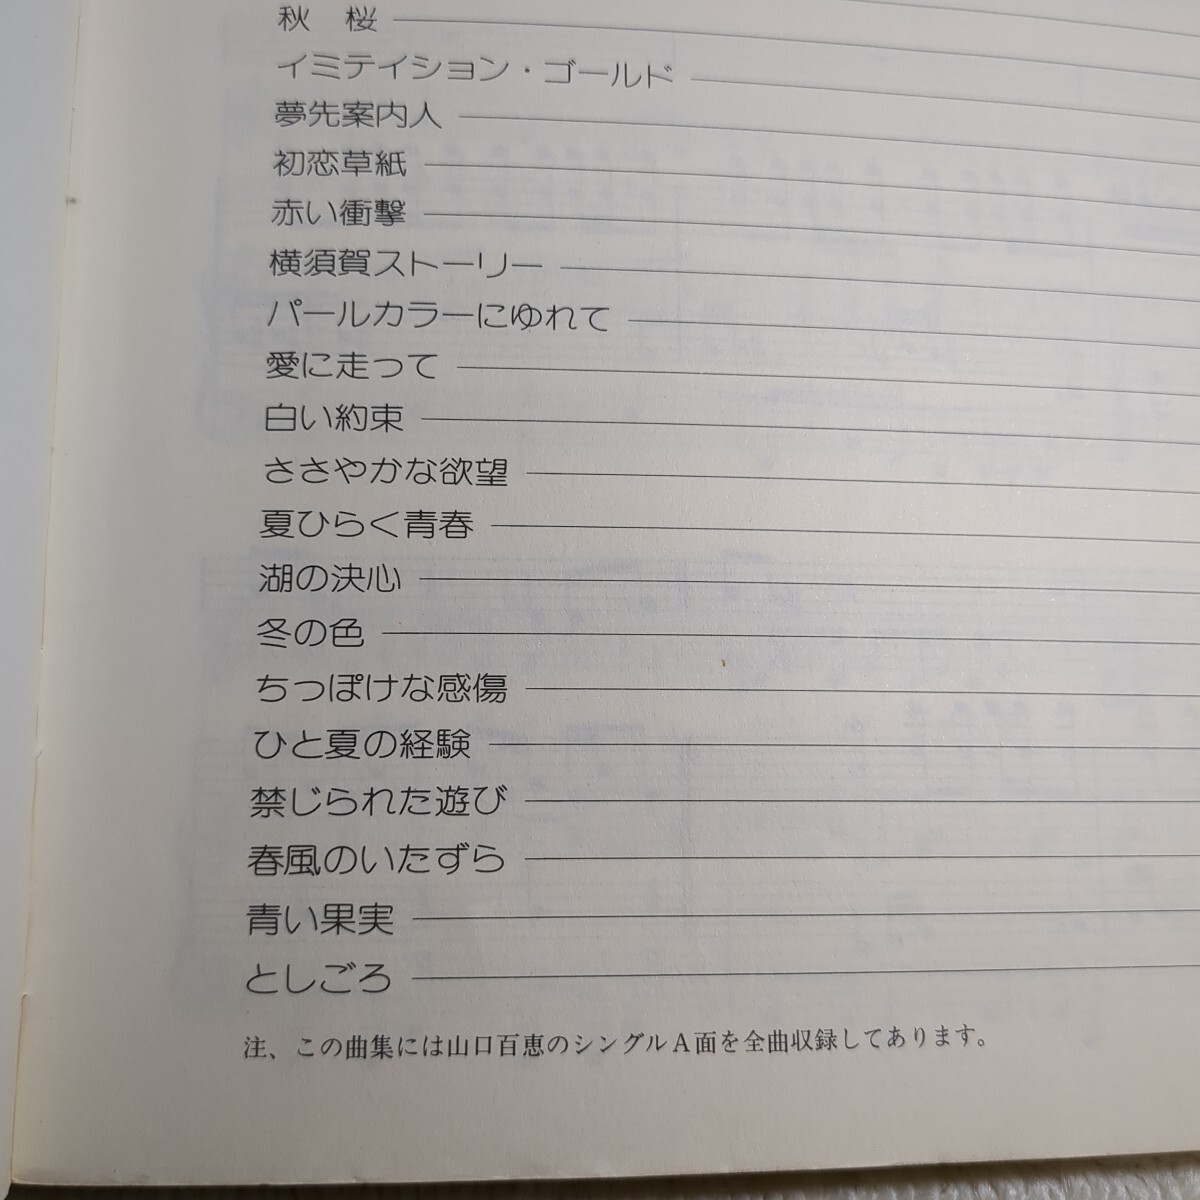 秋　桜
イミテイション・ゴールド
夢先案内人
初恋草紙
赤い衝撃
横須賀ストーリー
パールカラーにゆれて
愛に走って
白い約束
ささやかな欲望
夏ひらく青春
湖の決心
冬の色
ちっぽけな感傷
ひと夏の経験
禁じられた遊び
春風のいたずら
青い果実
としごろ
注、この曲集には山口百恵のシングルA面を全曲収録してあります。